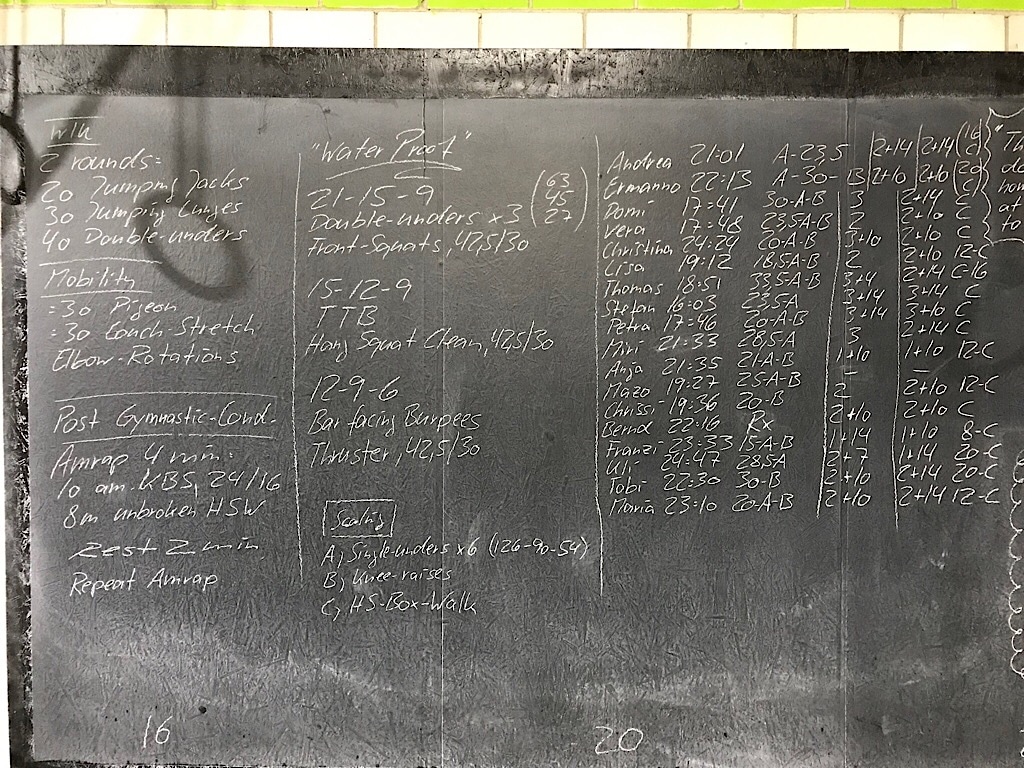 2 rounds:
20 Jumping Jacks
30 Jumping Lunges
40 Double-unders
Mobility
:30 Pigeon
:30 Couch-Stretch
Elbow-Rotations
Post Gymnastic-Cond.
Amrap 4 min:
10 am. KBS, 24/16
8m unbroken HSW
Rest 2 min
Repeat Amrap
16
"Water Proof"
21-15-9
Double-unders x3 (63 45 27)
Front-Squats, 42,5/30
15-12-9
TTB
Hang Squat Clean, 42,5/30
12-9-6
Bar facing Burpees
Thruster, 42,5/30
Scaling
A) Single-unders x6 (126-90-54)
B) Knee-raises
C) HS-Box-Walk
20
Andrea 21:01 A-23,5 2+14 2+14 (16 C)
Ermanno 22:13 A-30-B 2+10 2+10 (20 C)
Domi 17:41 30-A-B 3 2+14 C
Vera 17:48 23,5A-B 2 2+10 C
Christina 24:24 20-A-B 3+10 2+10 C
Lisa 19:12 18,5A-B 2 2+10 12-C
Thomas 18:51 33,5A-B 3+4 2+14 C-16
Stefan 16:03 23,5A 3+14 3+14 C
Petra 17:46 20-A-B 3+14 3+10 C
Miri 21:33 28,5A 3 2+14 C
Anja 21:35 21-A-B 1+10 1+10 12-C
19:27 25-A-B - -
Chrissi 19:36 20-B 2 2+10 12-C
Bernd 22:16 Rx 2+10 2+10 C
Franzi 23:33 15-A-B 1+14 1+10 8-C
Uli 24:47 28,5A 2+7 1+14 20-C
Tobi 22:30 30-B 2+10 2+14 20-C
Maria 23:10 20-A-B 2+10 2+14 12-C